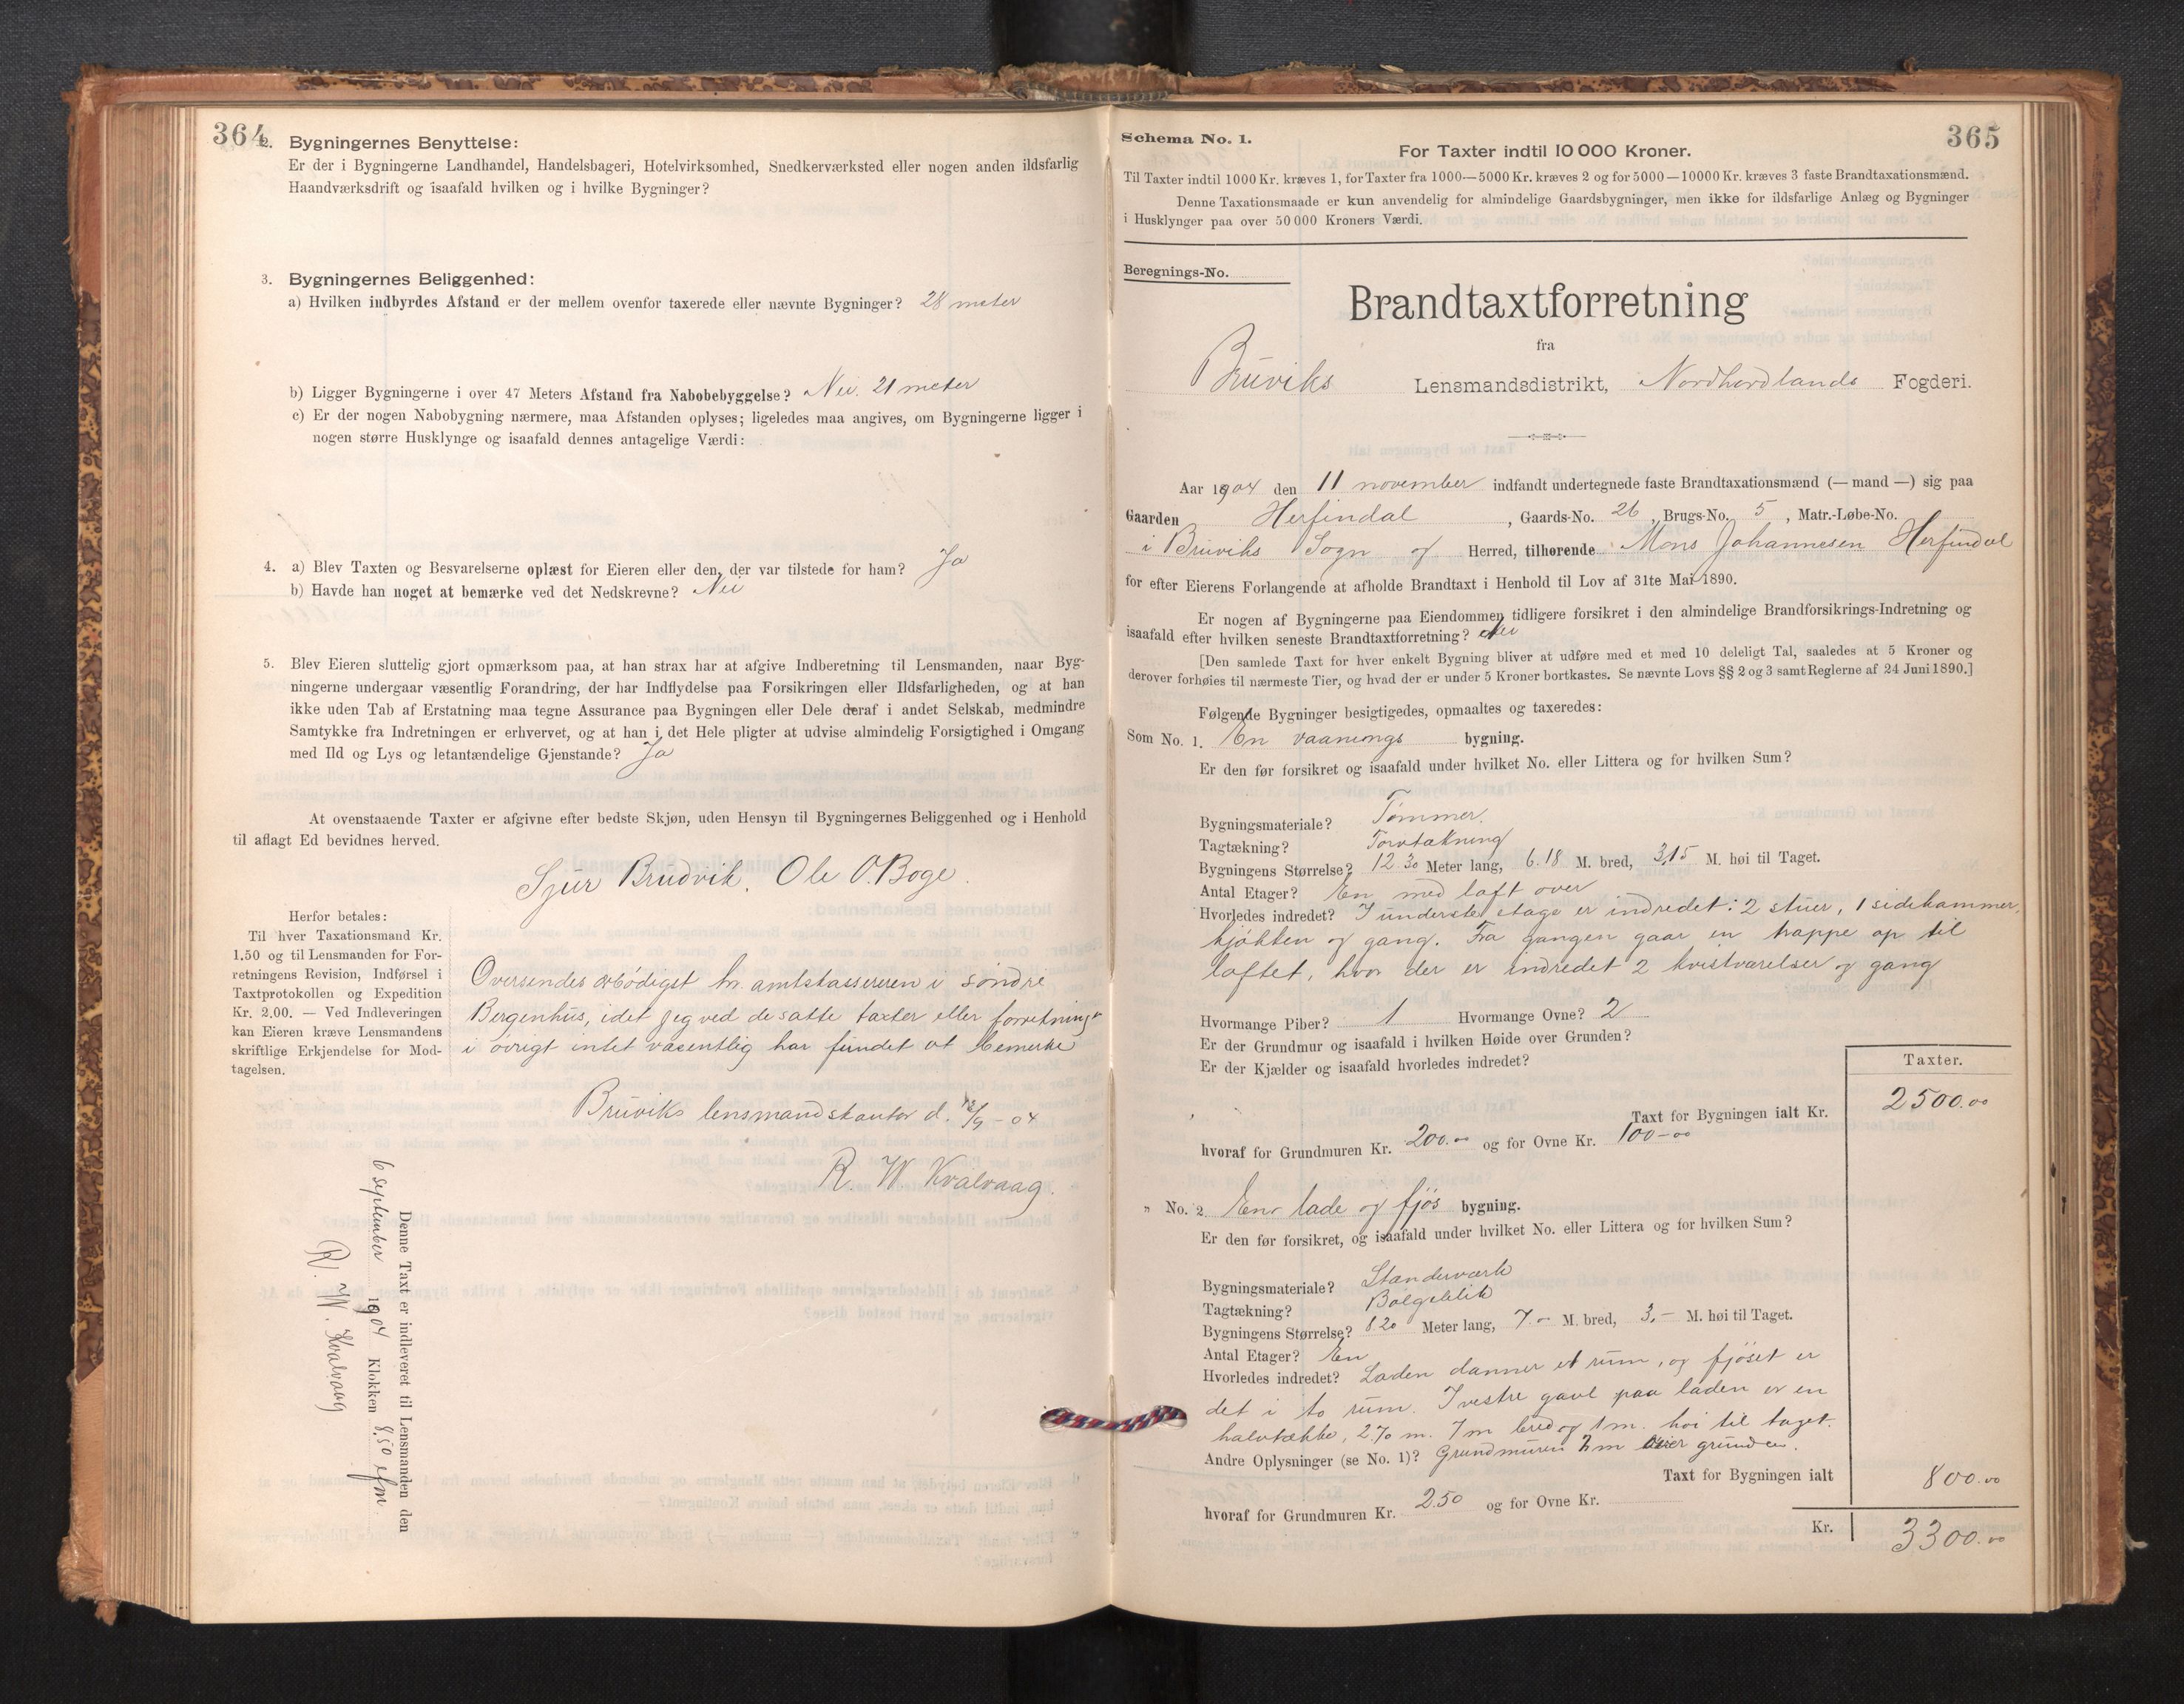 364
2. Bygningernes Benyttelse:
Er der i Bygningerne Landhandel, Handelsbageri, Hotelvirksomhed, Snedkerværksted eller nogen anden ildsfarlig
Haandværksdrift og isaafald hvilken og i hvilke Bygninger?
3. Bygningernes Beliggenhed:
a) Hvilken indbyrdes Afstand er der mellem ovenfor taxerede eller nævnte Bygninger? 28 meter
b) Ligger Bygningerne i over 47 Meters Afstand fra Nabobebyggelse? Nei. 21 meter
c) Er der nogen Nabobygning nærmere, maa Afstanden oplyses; ligeledes maa angives, om Bygningerne ligger i
nogen større Husklynge og isaafald dennes antagelige Værdi:
4. a) Blev Taxten og Besvarelserne oplæst for Eieren eller den, der var tilstede for ham? Ja
b) Havde han noget at bemærke ved det Nedskrevne? Nei
5. Blev Eieren sluttelig gjort opmærksom paa, at han strax har at afgive Indberetning til Lensmanden, naar Byg-
ningerne undergaar væsentlig Forandring, der har Indflydelse paa Forsikringen eller Ildsfarligheden, og at han
ikke uden Tab af Erstatning maa tegne Assurance paa Bygningen eller Dele deraf i andet Selskab, medmindre
Samtykke fra Indretningen er erhvervet, og at han i det Hele pligter at udvise almindelig Forsigtighed i Omgang
med Ild og Lys og letantændelige Gjenstande? Ja
At ovenstaaende Taxter er afgivne efter bedste Skjøn, uden Hensyn til Bygningernes Beliggenhed og i Henhold
til aflagt Ed bevidnes herved.
Sjur Brudvik. Ole O. Boge.
Herfor betales:
Til hver Taxationsmand Kr.
1.50 og til Lensmanden for For-
retningens Revision, Indførsel i
Taxtprotokollen og Expedition
Kr. 2.00. — Ved Indleveringen
kan Eieren kræve Lensmandens
skriftlige Erkjendelse for Mod-
tagelsen.
Oversendes ærbödigst hr. amtskassereren i söndre
Bergenhus, idet jeg ved de satte taxter eller forretning
i övrigt intet væsentlig har fundet at bemerke
Bruviks lensmandskontor d. 13/9 - 04
R. W. Kvalvaag.
Denne Taxt er indleveret til Lensmanden den
6 september 1904 Klokken 8.50 efm.
R. W. Kvalvaag
365
Schema No. 1.
For Taxter indtil 10 000 Kroner.
Til Taxter indtil 1000 Kr. kræves 1, for Taxter fra 1000—5000 Kr. kræves 2 og for 5000—10000 Kr. kræves 3 faste Brandtaxationsmænd.
Denne Taxationsmaade er kun anvendelig for almindelige Gaardsbygninger, men ikke for ildsfarlige Anlæg og Bygninger
i Husklynger paa over 50 000 Kroners Værdi.
Beregnings-No.
Brandtaxtforretning
fra
Bruviks Lensmandsdistrikt, Nordhordlands Fogderi.
Aar 1904 den 11 november indfandt undertegnede faste Brandtaxationsmænd (— mand —) sig paa
Gaarden Herfindal, Gaards-No. 26, Brugs-No. 5, Matr.-Løbe-No.
i Bruviks Sogn og Herred, tilhørende Mons Johannesen Herfindal
for efter Eierens Forlangende at afholde Brandtaxt i Henhold til Lov af 31te Mai 1890.
Er nogen af Bygningerne paa Eiendommen tidligere forsikret i den almindelige Brandforsikrings-Indretning og
isaafald efter hvilken seneste Brandtaxtforretning? Nei
[Den samlede Taxt for hver enkelt Bygning bliver at udføre med et med 10 deleligt Tal, saaledes at 5 Kroner og
derover forhøies til nærmeste Tier, og hvad der er under 5 Kroner bortkastes. Se nævnte Lovs §§ 2 og 3 samt Reglerne af 24 Juni 1890.]
Følgende Bygninger besigtigedes, opmaaltes og taxeredes:
Som No. 1. En vaanings bygning.
Er den før forsikret og isaafald under hvilket No. eller Littera og for hvilken Sum?
Bygningsmateriale? Tømmer.
Tagtækning? Torvtækning
Bygningens Størrelse? 12.30 Meter lang, 6.18 M. bred, 3.15 M. høi til Taget.
Antal Etager? En med loft over
Hvorledes indredet? I underste etage er indredet: 2 stuer, 1 sidekammer,
kjökken og gang. Fra gangen gaar en trappe op til
loftet, hvor der er indredet 2 kvistværelser og gang
Hvormange Piber? 1 Hvormange Ovne? 2
Er der Grundmur og isaafald i hvilken Høide over Grunden?
Er der Kjælder og isaafald hvorledes indredet?
Taxter.
Taxt for Bygningen ialt Kr. 2500.00
hvoraf for Grundmuren Kr. 200.00 og for Ovne Kr. 100-00
" No. 2. En lade og fjös bygning.
Er den før forsikret, og isaafald under hvilket No. eller Littera og for hvilken Sum?
Bygningsmateriale? Standerværk
Tagtækning? Bølgeblik
Bygningens Størrelse? 8.20 Meter lang, 7.- M. bred, 3.- M. høi til Taget.
Antal Etager? En
Hvorledes indredet? Laden danner et rum, og fjöset er
det i to rum. I vestre gavl paa laden er en
halvtække, 2.70 m. 7 m bred og 1 m. höi til taget.
Andre Oplysninger (se No. 1)? Grundmuren 2 m over grunden.
Taxt for Bygningen ialt 800.00
hvoraf for Grundmuren Kr. 250 og for Ovne Kr.
Kr. 3300.00